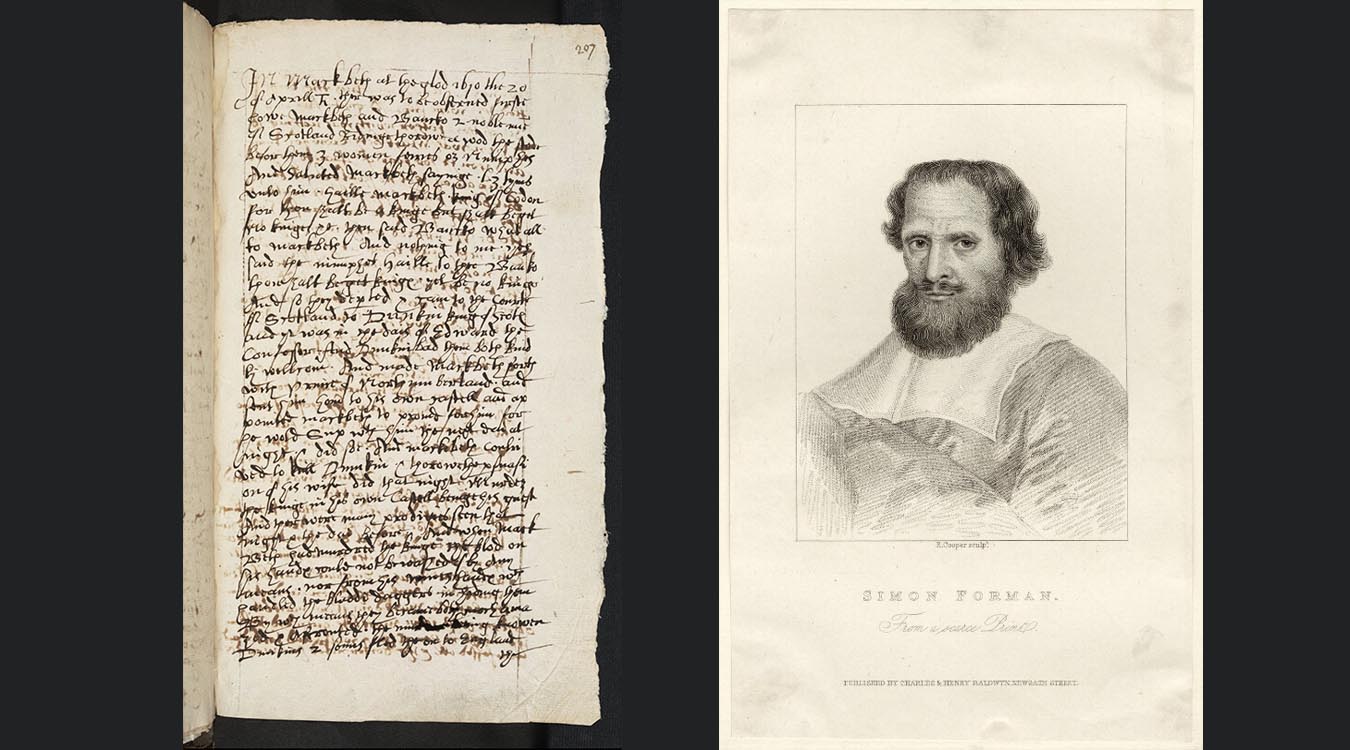 207
In Mackbeth at the glob 1610 the 20
of Aprill ♄ ther was to be obserued firste
howe Mackbeth and Bancko 2 noble men
of Scotland Ridinge thorowe a wod the stode
befor them 3 women feiries or Nimphes
And saluted Mackbeth sayinge 3 tyms
vnto him haille mackbeth king of Codon
for thou shalt be a kinge but shalt beget
No kinges &c. then said Bancko what all
to mackbeth And nothing to me. yes
said the nimphes Haille to thee Banko
thou shalt beget kinges yet be no kinge
And so they departed & cam to the Courte
of Scotland to Dunkin king of Scotes
and yt was in the dais of Edward the
Confessor. And Dunkin bad them both kind
ly wellcome. And made Mackbeth forth
with Prince of Northumberland. and
sent him hom to his own castell and ap
pointed mackbeth to prouid for him for
he wold Sup wth him the next dai at
night & did soe. And mackbeth contri
ved to kull Dunkin & thorowe the persuasi
on of his wife did that night Murder
the kinge in his own Castell beinge his guest
And ther were many prodigies seen that
night & the dai before. And when Mack
Beth had murdred the kinge the blod on
his handes could not be washed of by Any
meanes. nor from his wiues handes wch
handled the bloddi daggers in hiding them
By wch means they became both moch ama
zed & affronted. the murder being knowen
Dunkins 2 sonns fled the on to England
the
R. Cooper sculpt.
SIMON FORMAN.
From a scarce Print.
PUBLISHED BY CHARLES & HENRY BALDWYN, NEWGATE STREET.